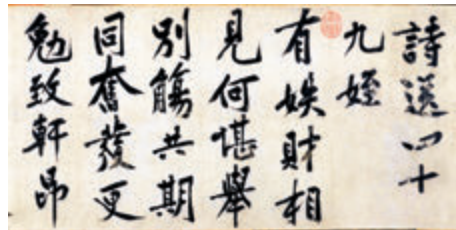 詩送四十
九姪
有娛財相
見何堪舉
別觴共期
同奮發更
勉致軒昂